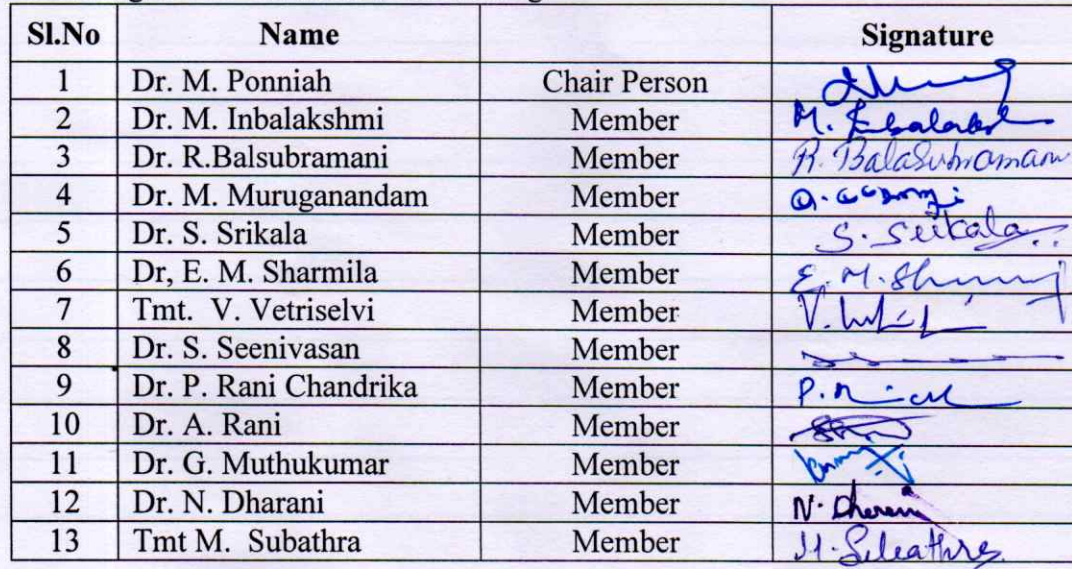 Sl.No Name Signature
1 Dr. M. Ponniah Chair Person
2 Dr. M. Inbalakshmi Member M.
3 Dr. R.Balsubramani Member R. Balasubramani
4 Dr. M. Muruganandam Member
5 Dr. S. Srikala Member S. Srikala
6 Dr, E. M. Sharmila Member E. M.
7 Tmt. V. Vetriselvi Member V.
8 Dr. S. Seenivasan Member
9 Dr. P. Rani Chandrika Member P.
10 Dr. A. Rani Member
11 Dr. G. Muthukumar Member
12 Dr. N. Dharani Member N. Dharani
13 Tmt M. Subathra Member M. Subathra